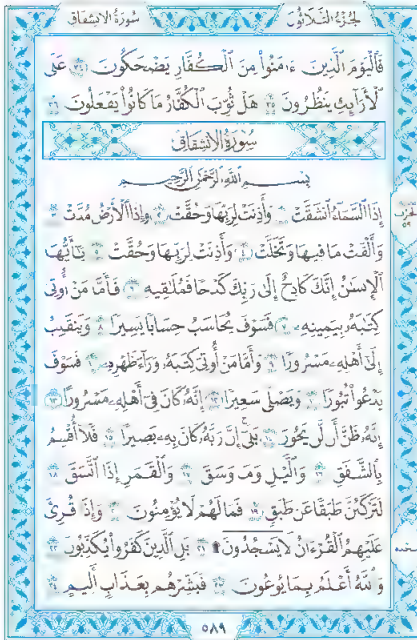 الجزء الثلاثون سورة الانشقاق
فَالْيَوْمَ الَّذِينَ ءَامَنُوا۟ مِنَ الْكُفَّارِ يَضْحَكُونَ ٣٤ عَلَى
الْأَرَآئِكِ يَنظُرُونَ ٣٥ هَلْ ثُوِّبَ الْكُفَّارُ مَا كَانُوا۟ يَفْعَلُونَ ٣٦
سورة الانشقاق
بِسْمِ اللَّهِ الرَّحْمَٰنِ الرَّحِيمِ
إِذَا السَّمَآءُ انشَقَّتْ ١ وَأَذِنَتْ لِرَبِّهَا وَحُقَّتْ ٢ وَإِذَا الْأَرْضُ مُدَّتْ ٣
وَأَلْقَتْ مَا فِيهَا وَتَخَلَّتْ ٤ وَأَذِنَتْ لِرَبِّهَا وَحُقَّتْ ٥ يَٰٓأَيُّهَا
الْإِنسَٰنُ إِنَّكَ كَادِحٌ إِلَىٰ رَبِّكَ كَدْحًا فَمُلَٰقِيهِ ٦ فَأَمَّا مَنْ أُوتِىَ
كِتَٰبَهُۥ بِيَمِينِهِۦ ٧ فَسَوْفَ يُحَاسَبُ حِسَابًا يَسِيرًا ٨ وَيَنقَلِبُ
إِلَىٰٓ أَهْلِهِۦ مَسْرُورًا ٩ وَأَمَّا مَنْ أُوتِىَ كِتَٰبَهُۥ وَرَآءَ ظَهْرِهِۦ ١٠ فَسَوْفَ
يَدْعُوا۟ ثُبُورًا ١١ وَيَصْلَىٰ سَعِيرًا ١٢ إِنَّهُۥ كَانَ فِىٓ أَهْلِهِۦ مَسْرُورًا ١٣
إِنَّهُۥ ظَنَّ أَن لَّن يَحُورَ ١٤ بَلَىٰٓ إِنَّ رَبَّهُۥ كَانَ بِهِۦ بَصِيرًا ١٥ فَلَآ أُقْسِمُ
بِالشَّفَقِ ١٦ وَالَّيْلِ وَمَا وَسَقَ ١٧ وَالْقَمَرِ إِذَا اتَّسَقَ ١٨
لَتَرْكَبُنَّ طَبَقًا عَن طَبَقٍ ١٩ فَمَا لَهُمْ لَا يُؤْمِنُونَ ٢٠ وَإِذَا قُرِئَ
عَلَيْهِمُ الْقُرْءَانُ لَا يَسْجُدُونَ ۩ ٢١ بَلِ الَّذِينَ كَفَرُوا۟ يُكَذِّبُونَ ٢٢
وَاللَّهُ أَعْلَمُ بِمَا يُوعُونَ ٢٣ فَبَشِّرْهُم بِعَذَابٍ أَلِيمٍ ٢٤
٥٨٩